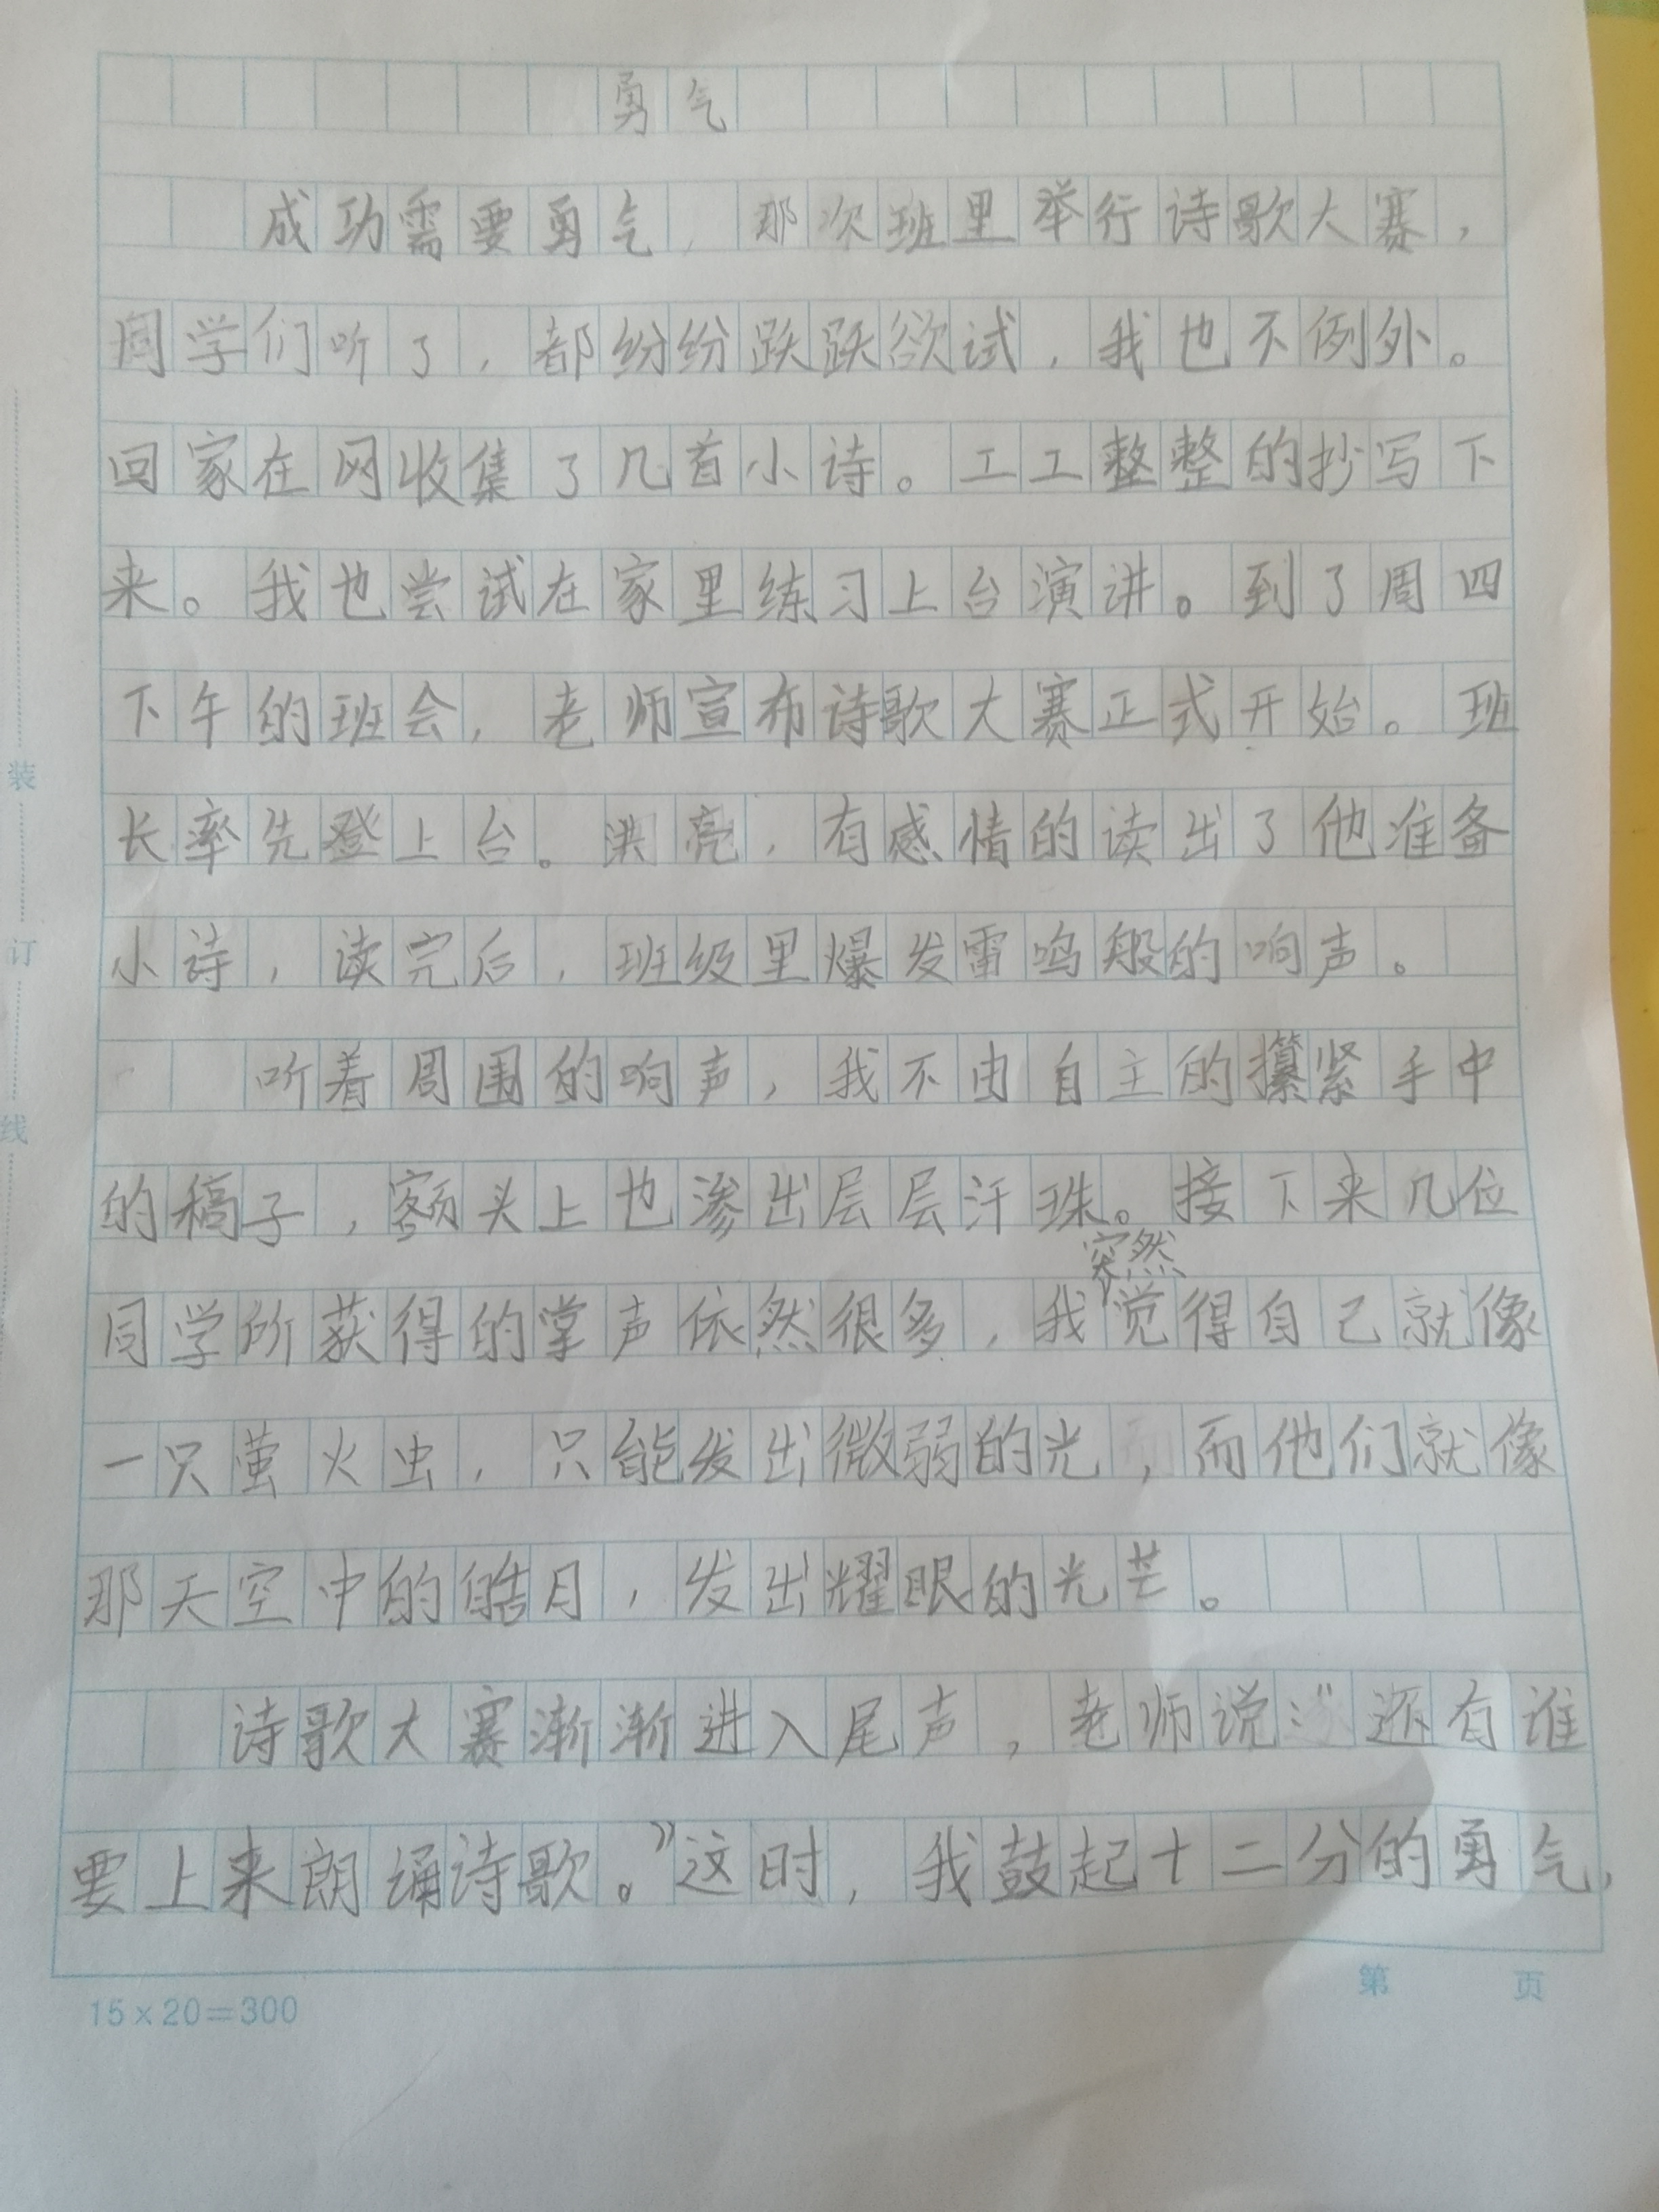 勇气
成功需要勇气，那次班里举行诗歌大赛，
同学们听了，都纷纷跃跃欲试，我也不例外。
回家在网收集了几首小诗。工工整整的抄写下
来。我也尝试在家里练习上台演讲。到了周四
下午的班会，老师宣布诗歌大赛正式开始。班
长率先登上台。洪亮，有感情的读出了他准备
小诗，读完后，班级里爆发雷鸣般的响声。
听着周围的响声，我不由自主的攥紧手中
的稿子，额头上也渗出层层汗珠。接下来几位
突然
同学所获得的掌声依然很多，我觉得自己就像
一只萤火虫，只能发出微弱的光，而他们就像
那天空中的皓月，发出耀眼的光芒。
诗歌大赛渐渐进入尾声，老师说：“还有谁
要上来朗诵诗歌。”这时，我鼓起十二分的勇气，
装
订
线
15×20=300
第 页